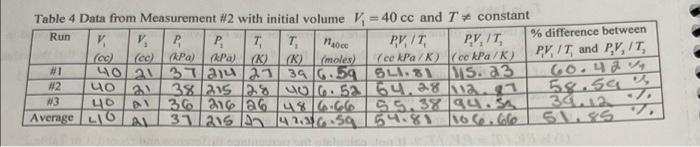 Table 4 Data from Measurement #2 with initial volume V₁ = 40 cc and T ≠ constant
Run V₁ V₂ P₁ P₂ T₁ T₂ n₄₀cc P₁V₁ / T₁ P₂V₂ / T₂ % difference between
(cc) (cc) (kPa) (kPa) (K) (K) (moles) (cc kPa / K) (cc kPa / K) P₁V₁ / T₁ and P₂V₂ / T₂
#1 40 21 37 214 27 39 6.59 54.81 115.23 60.42 %
#2 40 21 38 215 28 40 6.52 54.28 112.87 58.59 %
#3 40 21 36 216 26 48 6.66 55.38 94.5 39.12 %
Average 40 21 37 215 27 42.3 6.59 54.81 106.66 51.85 %